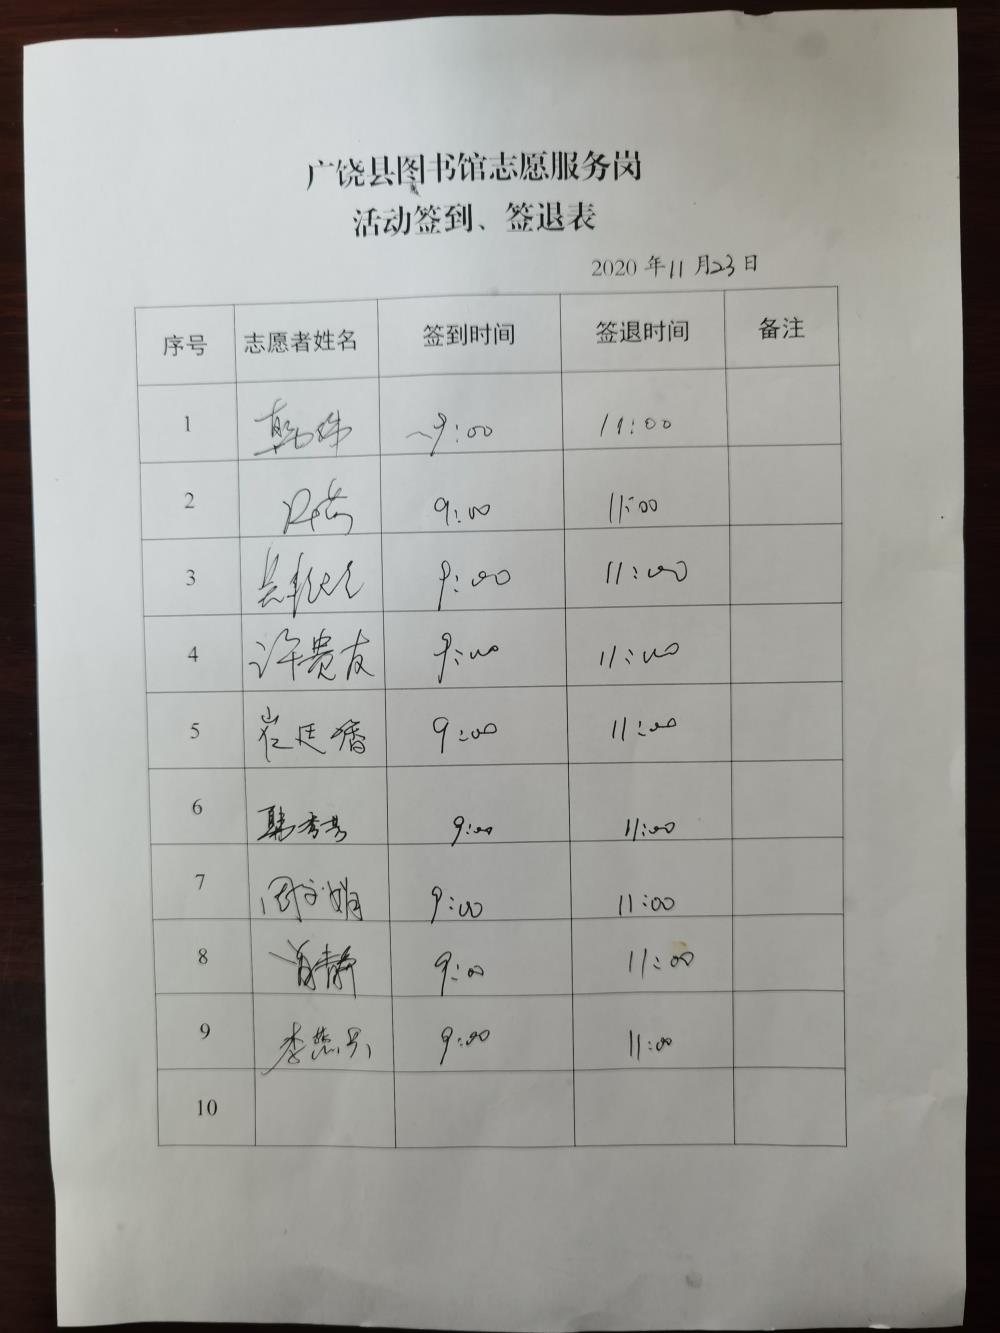 广饶县图书馆志愿服务岗
活动签到、签退表
2020 年11月23日
序号 志愿者姓名 签到时间 签退时间 备注
1 9:00 11:00
2 9:00 11:00
3 9:00 11:00
4 许贵友 9:00 11:00
5 崔廷香 9:00 11:00
6 9:00 11:00
7 周文娟 9:00 11:00
8 肖静 9:00 11:00
9 9:00 11:00
10